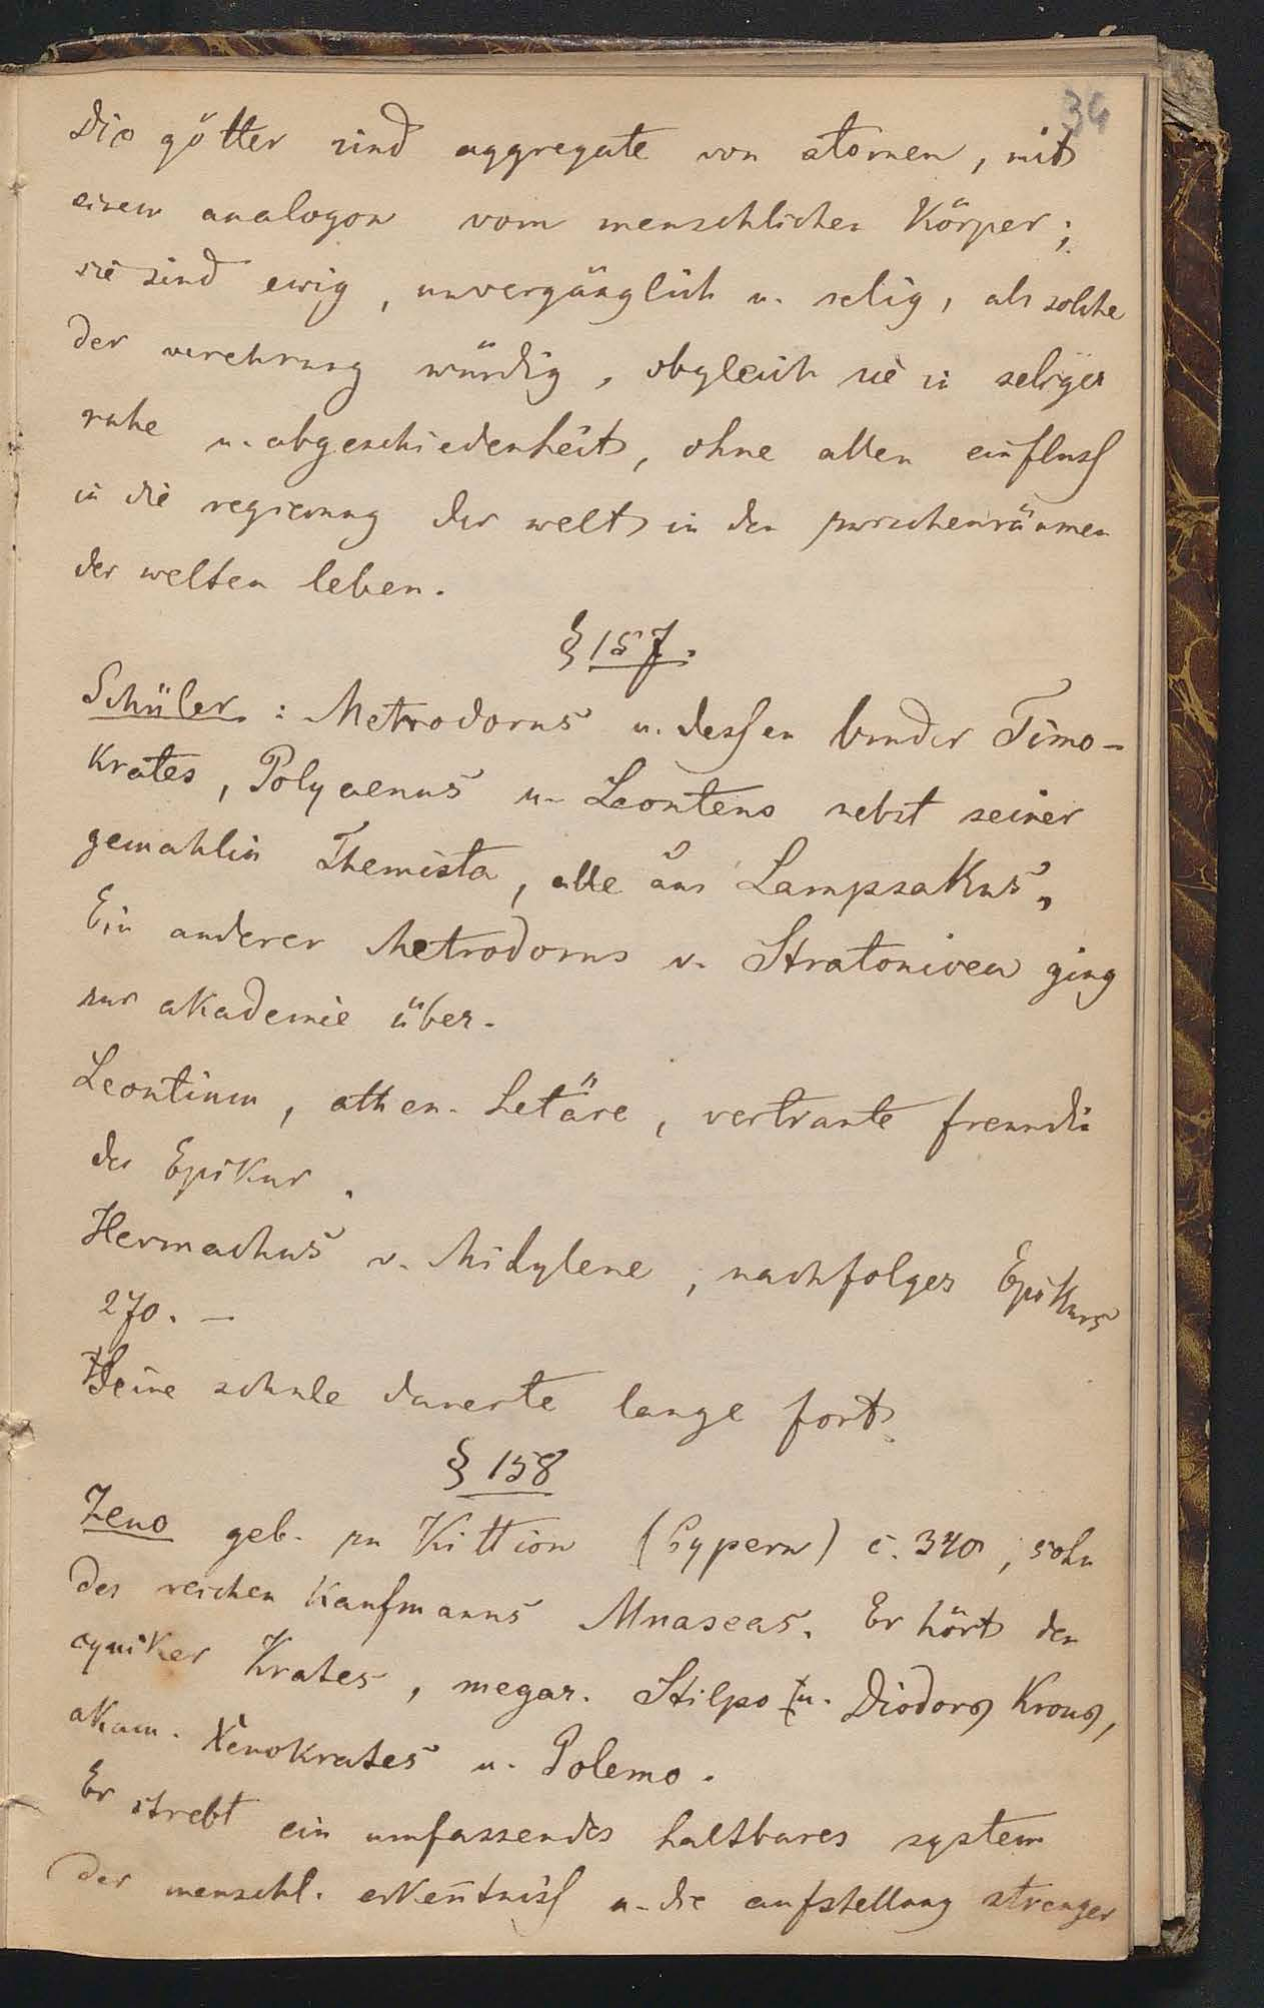 34
Die götter sind aggregate von atomen, mit
einem analogon vom menschlichen Körper;
sie sind ewig, unvergänglich u. selig, als solche
der verehrung würdig, obgleich sie in seliger
ruhe u. abgeschiedenheit, ohne allen einfluss
in die regierung der welt in den zwischenräumen
der welten leben.
§ 157.
Schüler: Metrodorus u. dessen bruder Timo-
Krates, Polyaenus u. Leonteus nebst seiner
gemahlin Themista, alle aus Lampsakus.
Ein anderer Metrodorus v. Stratonicea ging
zur akademie über.
Leontium, athen. hetäre, vertraute freundin
des Epikur.
Hermachus v. Midylene, nachfolger Epikurs
270. –
Seine schule dauerte lange fort.
§ 158
Zeno geb. zu Kittion (Cypern) c. 340, sohn
des reichen Kaufmanns Mnaseas. Er hört den
cyniker Krates, megar. Stilpo u. Diodoros Kronos,
akam. Xenokrates u. Polemo.
Er strebt ein umfassendes haltbares system
der menschl. erkentniss u. die aufstellung strenger